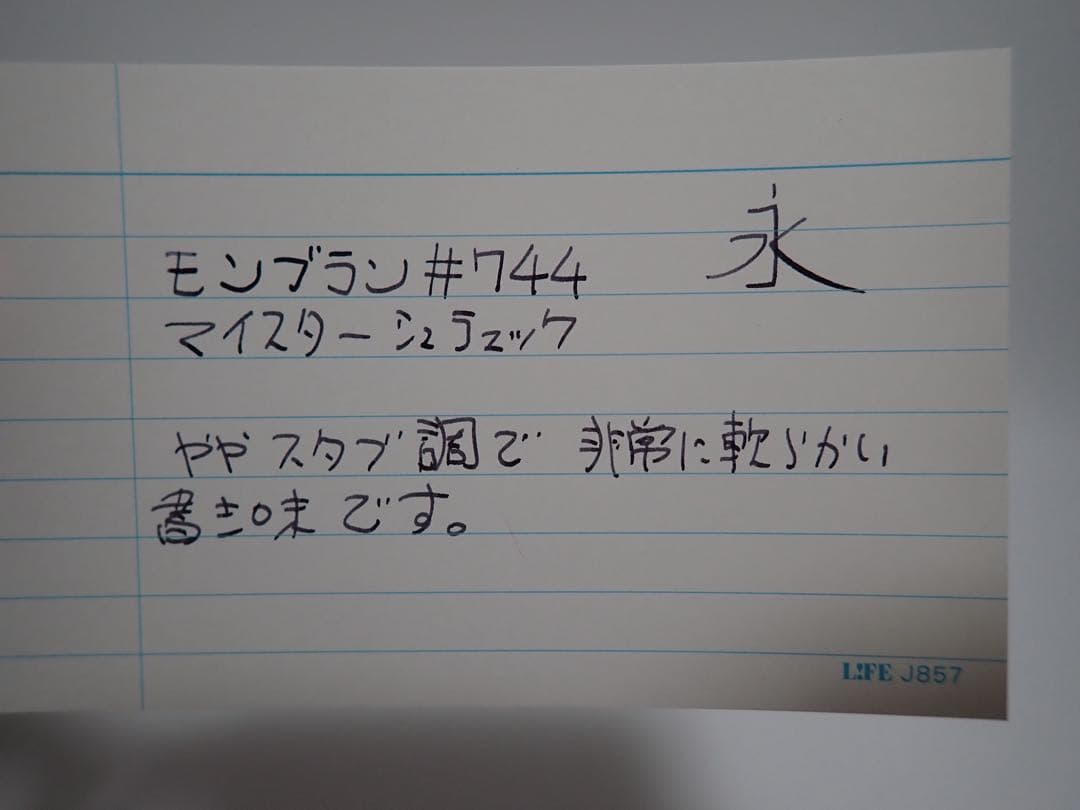 永
モンブラン#744
マイスターシュテュック
ややスタブ調で 非常に軟らかい
書き味です。
L!FE J857